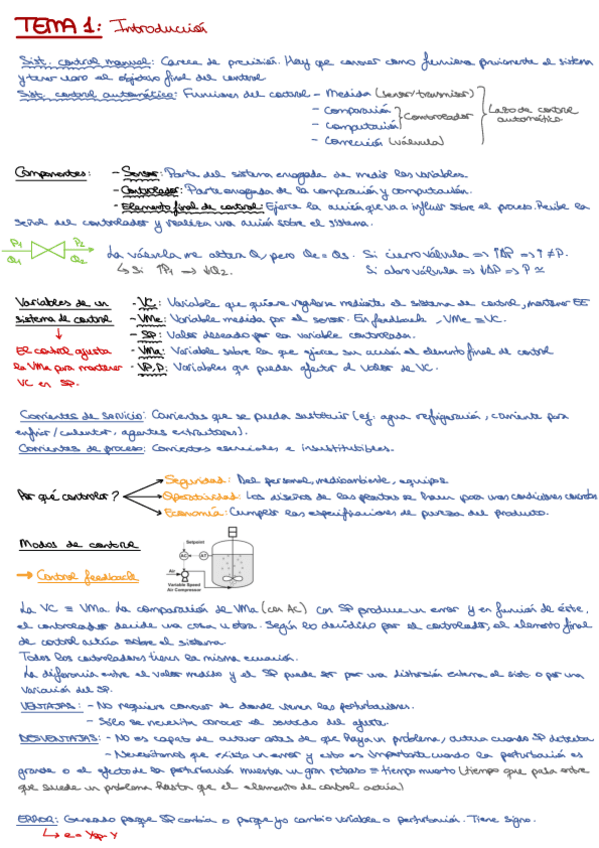 TEMA 1: Introducción
Sist. control manual: Carece de precisión. Hay que conocer como funciona previamente el sistema
y tener claro el objetivo final del control
Sist. control automático: Funciones del control - Medida (sensor/transmisor)
- Comparación
- Computación
Controlador
- Corrección (válvula)
Lazo de control
automático
Componentes: - Sensor: Parte del sistema encargada de medir las variables.
- Controlador: Parte encargada de la comparación y computación.
- Elemento final de control: Ejerce la acción que va a influir sobre el proceso. Recibe la
señal del controlador y realiza una acción sobre el sistema.
P1 P2
Q1 Q2
La válvula me altera Q pero Qe = Qs. Si cierro válvula => ↑ΔP => ↑ ≠P.
↳ Si ↑P1 → ↓Q2. Si abro válvula => ↓ΔP => P ≃
Variables de un
sistema de control
- VC: Variable que quiero regularse mediante el sistema de control, mantener EE
- VMe: Variable medida por el sensor. En feedback, VMe ≡ VC.
- SP: Valor deseado por la variable controlada.
- VMa: Variable sobre la que ejerce su acción el elemento final de control
- VP, D: Variables que pueden afectar el valor de VC.
El control ajusta
la VMa para mantener
VC en SP.
Corrientes de servicio: Corrientes que se pueda sustituir (ej: agua refrigeración, corriente para
enfriar/calentar, agentes extractores).
Corrientes de proceso: Corrientes esenciales e insustituibles.
Por qué controlar?
Seguridad: Del personal, medioambiente, equipos
Operatividad: Los diseños de las plantas se hacen para unas condiciones concretas
Economía: Cumplir las especificaciones de pureza del producto.
Modos de control
→ Control feedback
Setpoint
AC AT
Air
Variable Speed
Air Compressor
La VC ≡ VMa. La comparación de VMa (con AC) con SP produce un error y en función de éste,
el controlador decide una cosa u otra. Según lo decidido por el controlador, el elemento final
de control actúa sobre el sistema.
Todos los controladores tienen la misma ecuación.
La diferencia entre el valor medido y el SP puede ser por una distorsión externa al sist. o por una
variación del SP.
VENTAJAS: - No requiere conocer de donde vienen las perturbaciones.
- Sólo se necesita conocer el sentido del ajuste.
DESVENTAJAS: - No es capaz de actuar antes de que haya un problema, actúa cuando SP detecta
- Necesitamos que exista un error y esto es importante cuando la perturbación es
grande o el efecto de la perturbación muestra un gran retraso = tiempo muerto (tiempo que pasa entre
que sucede un problema hasta que el elemento de control actúa)
ERROR: Generado porque SP cambia o porque yo cambio variable o perturbación. Tiene signo.
↳ e = Ysp - Y